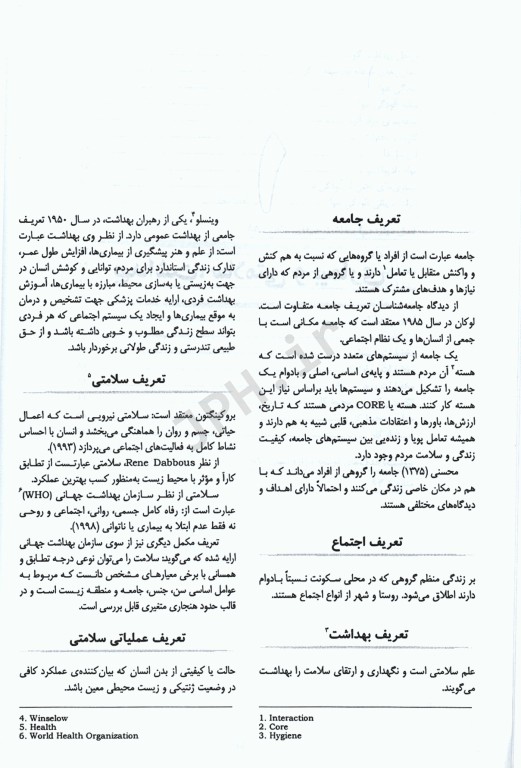 تعریف جامعه
جامعه عبارت است از افراد یا گروه‌هایی که نسبت به هم کنش
و واکنش متقابل یا تعامل۱ دارند و یا گروهی از مردم که دارای
نیازها و هدف‌های مشترک هستند.
از دیدگاه جامعه‌شناسان تعریف جامعه متفاوت است.
لوکان در سال ۱۹۸۵ معتقد است که جامعه مکانی است با
جمعی از انسان‌ها و یک نظام اجتماعی.
یک جامعه از سیستم‌های متعدد درست شده است که
هسته۲ آن مردم هستند و پایه‌ی اساسی، اصلی و بادوام یک
جامعه را تشکیل می‌دهند و سیستم‌ها باید براساس نیاز این
هسته کار کنند. هسته یا CORE مردمی هستند که تاریخ،
ارزش‌ها، باورها و اعتقادات مذهبی، قلبی شبیه به هم دارند و
همیشه تعامل پویا و زنده‌یی بین سیستم‌های جامعه، کیفیت
زندگی و سلامت مردم وجود دارد.
محسنی (۱۳۷۵) جامعه را گروهی از افراد می‌داند که با
هم در مکان خاصی زندگی می‌کنند و احتمالاً دارای اهداف و
دیدگاه‌های مختلفی هستند.
تعریف اجتماع
بر زندگی منظم گروهی که در محلی سکونت نسبتاً بادوام
دارند اطلاق می‌شود. روستا و شهر از انواع اجتماع هستند.
تعریف بهداشت۳
علم سلامتی است و نگهداری و ارتقای سلامت را بهداشت
می‌گویند.
1. Interaction
2. Core
3. Hygiene
وینسلو۴، یکی از رهبران بهداشت، در سال ۱۹۵۰ تعریف
جامعی از بهداشت عمومی دارد. از نظر وی بهداشت عبارت
است: از علم و هنر پیشگیری از بیماری‌ها، افزایش طول عمر،
تدارک زندگی استاندارد برای مردم، توانایی و کوشش انسان در
جهت به‌زیستی یا به‌سازی محیط، مبارزه با بیماری‌ها، آموزش
بهداشت فردی، ارایه خدمات پزشکی جهت تشخیص و درمان
به موقع بیماری‌ها و ایجاد یک سیستم اجتماعی که هر فردی
بتواند سطح زندگی مطلوب و خوبی داشته باشد و از حق
طبیعی تندرستی و زندگی طولانی برخوردار باشد.
تعریف سلامتی۵
بروکینگتون معتقد است: سلامتی نیرویی است که اعمال
حیاتی، جسم و روان را هماهنگی می‌بخشد و انسان با احساس
نشاط کامل به فعالیت‌های اجتماعی می‌پردازد (۱۹۹۳).
از نظر Rene Dabbous، سلامتی عبارتست از تطابق
کارآ و مؤثر با محیط زیست به‌منظور کسب بهترین عملکرد.
سلامتی از نظر سازمان بهداشت جهانی (WHO)۶
عبارت است از: رفاه کامل جسمی، روانی، اجتماعی و روحی
نه فقط عدم ابتلا به بیماری یا ناتوانی (۱۹۹۸).
تعریف مکمل دیگری نیز از سوی سازمان بهداشت جهانی
ارایه شده که می‌گوید: سلامت را می‌توان نوعی درجه تطابق و
همسانی با برخی معیارهای مشخص دانست که مربوط به
عوامل اساسی سن، جنس، جامعه و منطقه زیست است و در
قالب حدود هنجاری متغیری قابل بررسی است.
تعریف عملیاتی سلامتی
حالت یا کیفیتی از بدن انسان که بیان‌کننده‌ی عملکرد کافی
در وضعیت ژنتیکی و زیست محیطی معین باشد.
4. Winselow
5. Health
6. World Health Organization